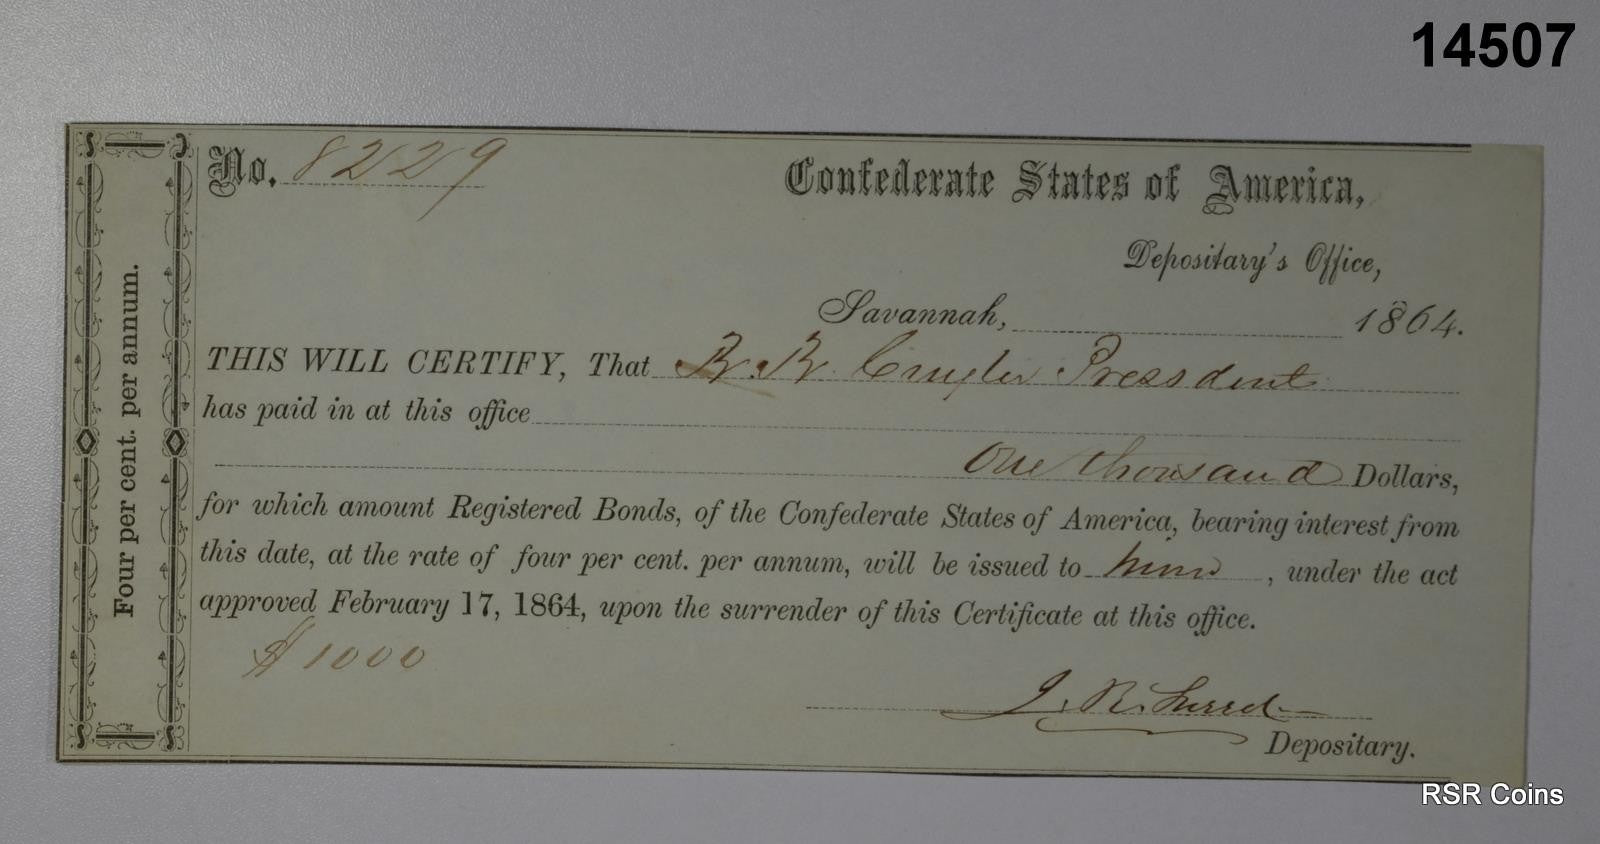 14507
No. 8229
Confederate States of America,
Depositary's Office,
Savannah, 1864.
THIS WILL CERTIFY, That R. R. Cuyler President
has paid in at this office
One thousand Dollars,
for which amount Registered Bonds, of the Confederate States of America, bearing interest from
this date, at the rate of four per cent. per annum, will be issued to him, under the act
approved February 17, 1864, upon the surrender of this Certificate at this office.
$1000
Depositary.
Four per cent. per annum.
RSR Coins